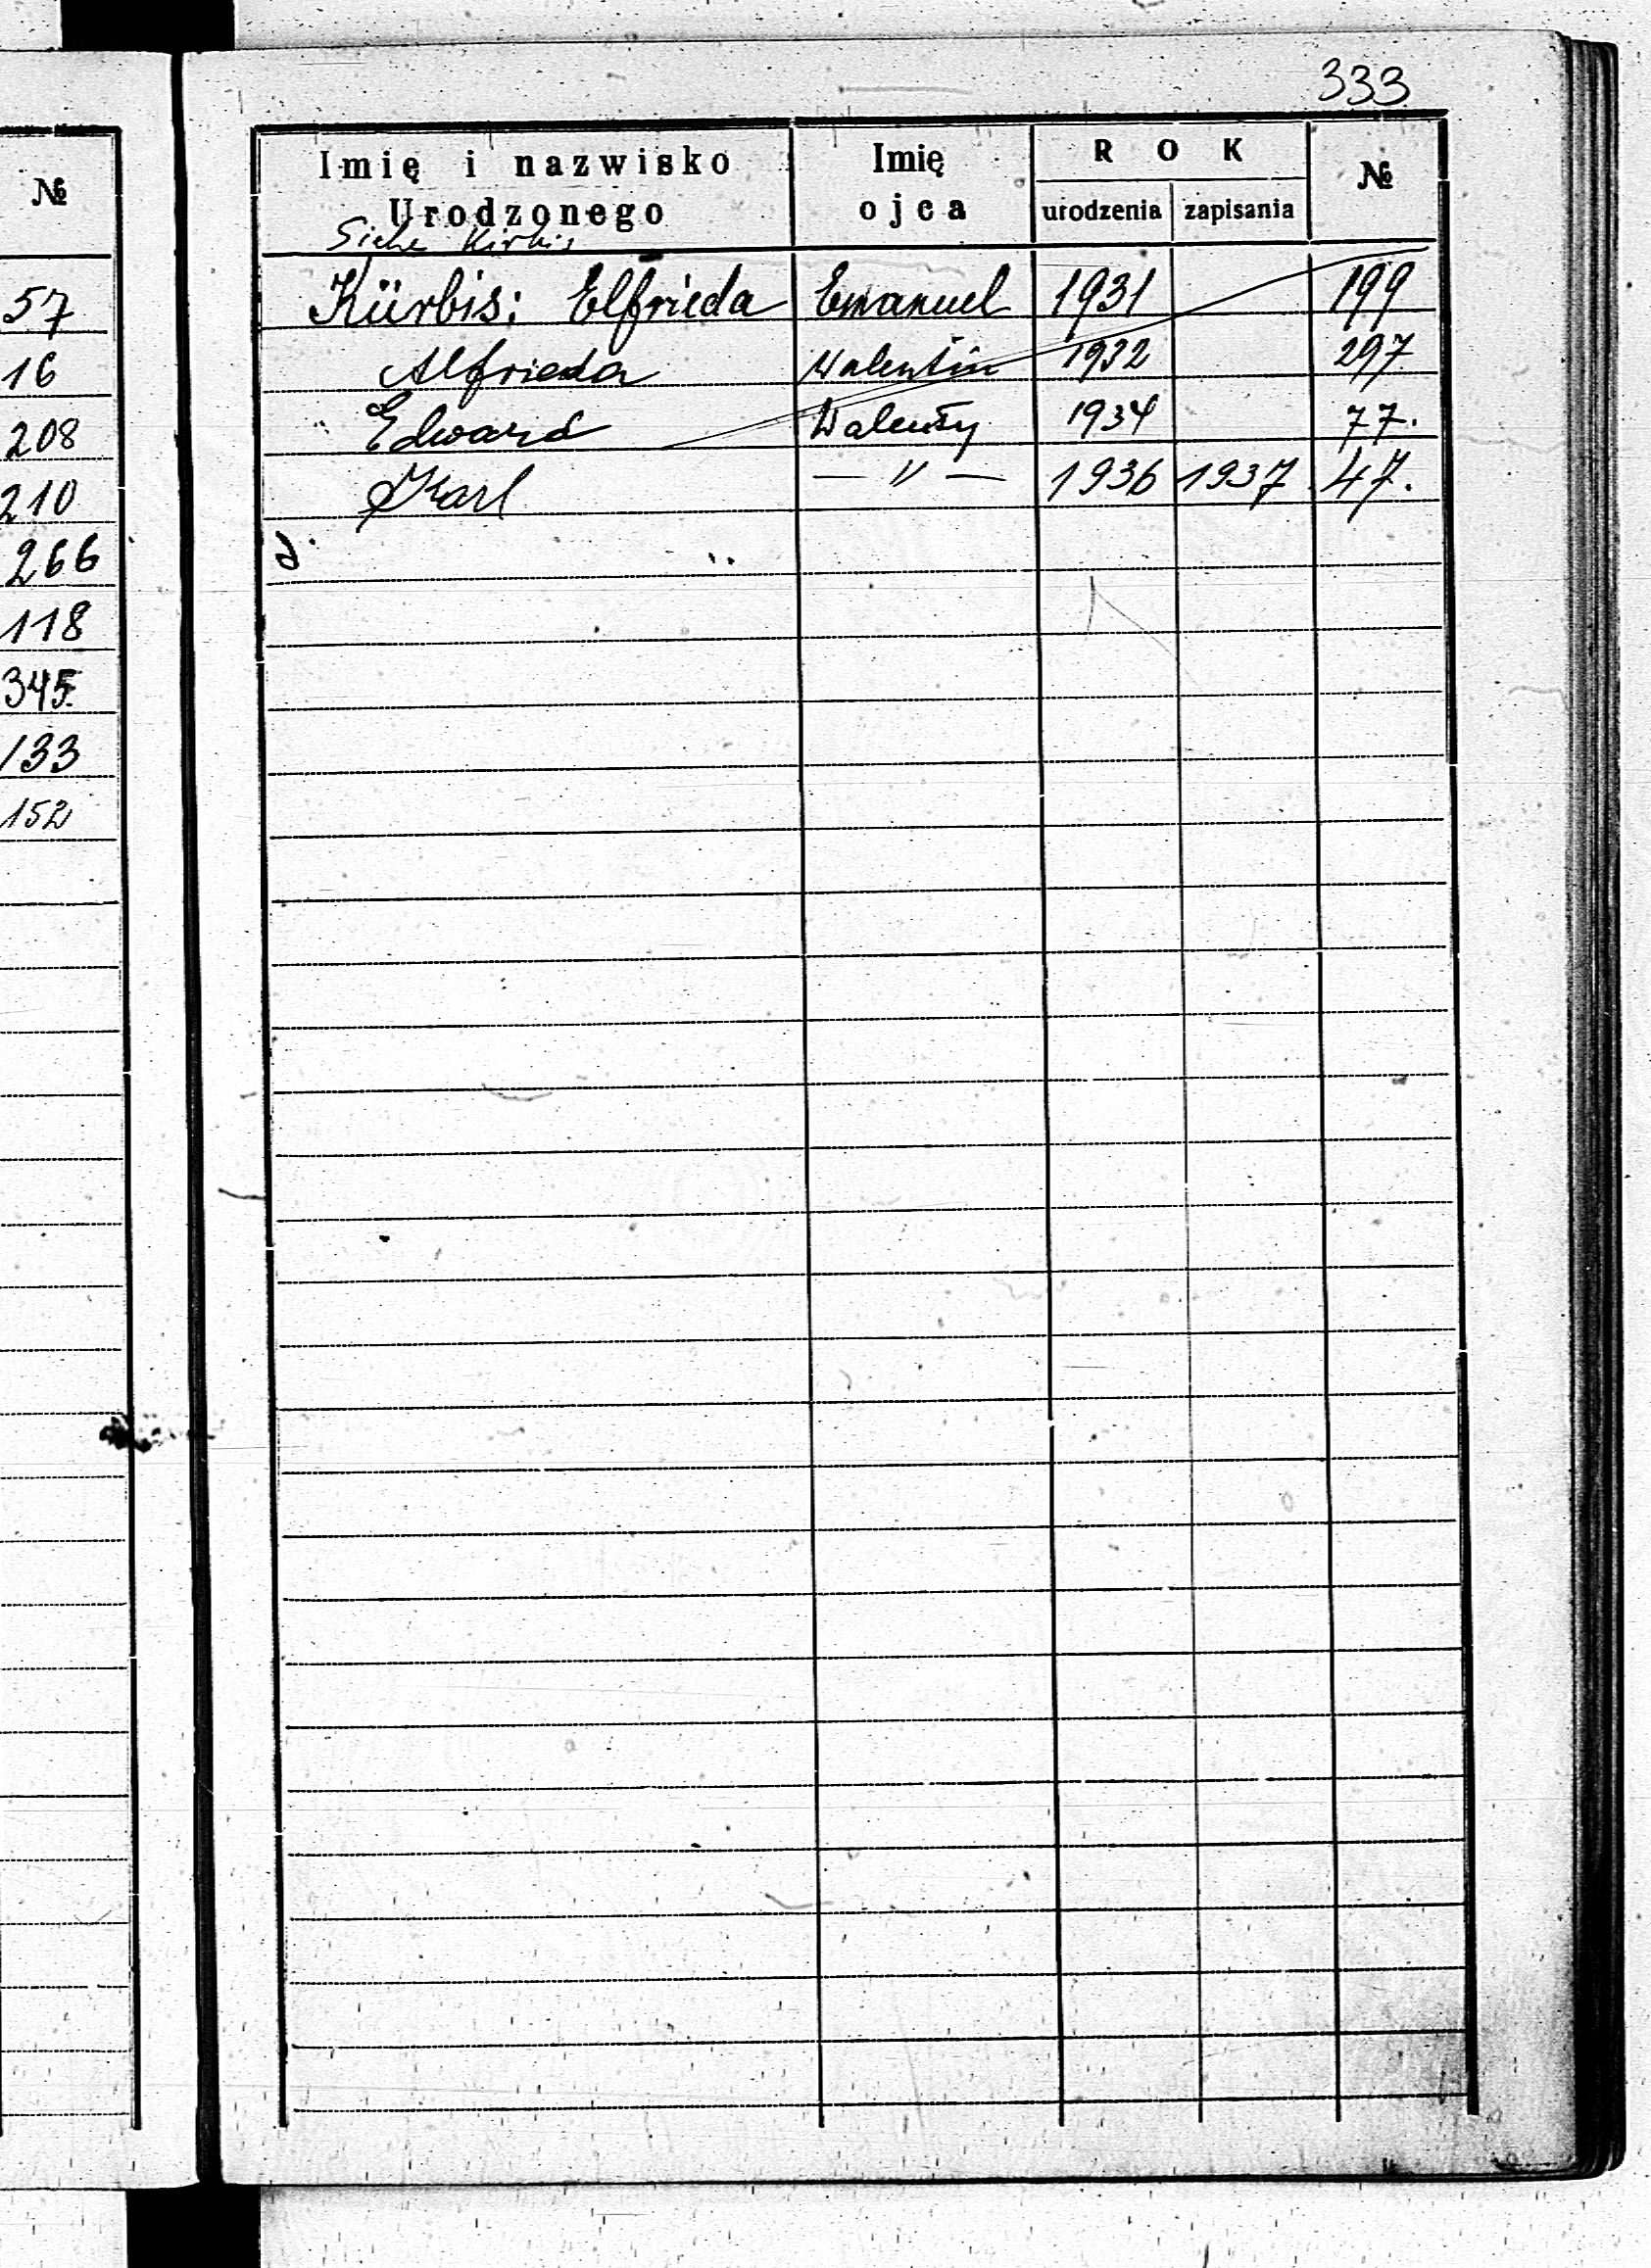 333
№
57
16
208
210
266
118
345.
133
152
Imię i nazwisko Urodzonego
Imię ojca
ROK
urodzenia zapisania
№
Siehe Kirbis
Kürbis: Elfrieda Emanuel 1931 199
Alfrieda Walentin 1932 297
Edward Walenty 1934 77.
Karl — " — 1936 1937 47.